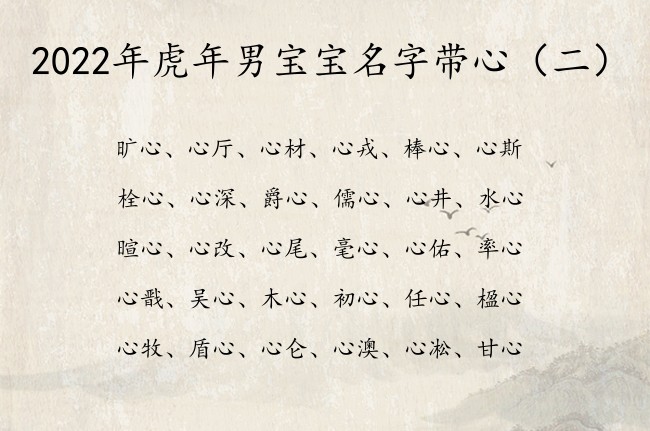 2022年虎年男宝宝名字带心（二）
旷心、心厅、心材、心戎、棒心、心斯
栓心、心深、爵心、儒心、心井、水心
暄心、心改、心尾、毫心、心佑、率心
心戬、吴心、木心、初心、任心、楹心
心牧、盾心、心仑、心澳、心凇、甘心